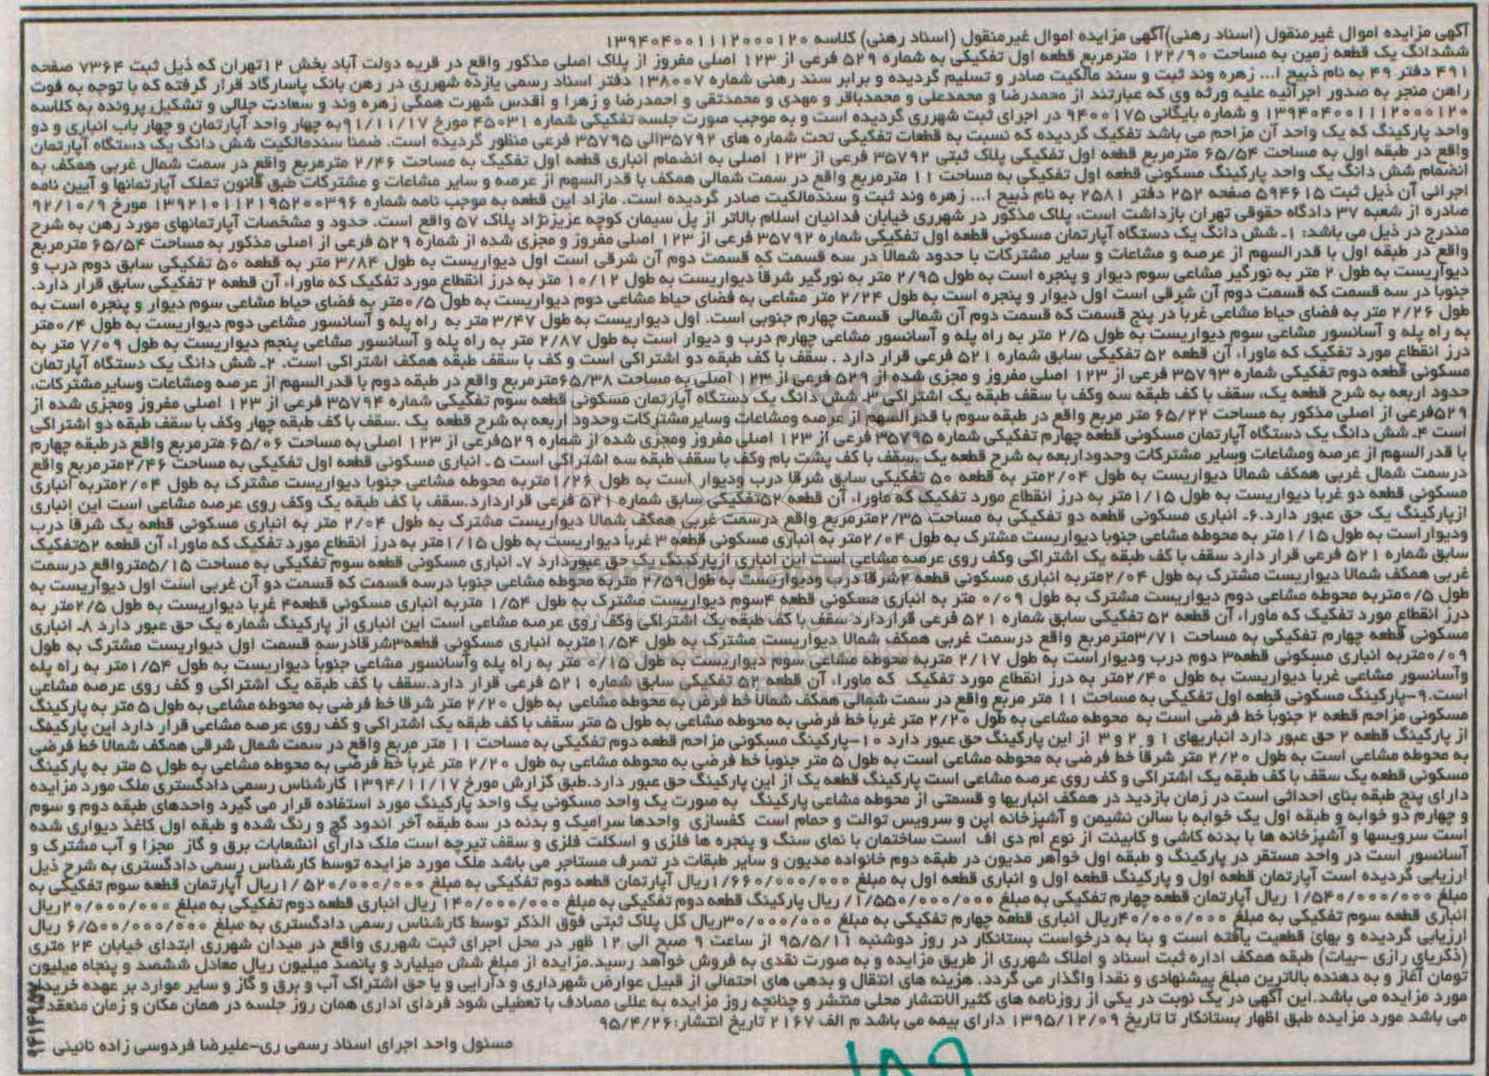 آگهی مزایده اموال غیرمنقول (اسناد رهنی)آگهی مزایده اموال غیرمنقول (اسناد رهنی) کلاسه ۱۳۹۴۰۴۰۰۱۱۱۲۰۰۰۱۲۰
ششدانگ یک قطعه زمین به مساحت ۱۲۲/۹۰ مترمربع قطعه اول تفکیکی به شماره ۵۲۹ فرعی از ۱۲۳ اصلی مفروز از پلاک اصلی مذکور واقع در قریه دولت آباد بخش ۱۲تهران که ذیل ثبت ۷۳۶۴ صفحه
۴۹۱ دفتر ۴۹ به نام ذبیح ا... زهره وند ثبت و سند مالکیت صادر و تسلیم گردیده و برابر سند رهنی شماره ۱۳۸۰۰۷ دفتر اسناد رسمی یازده شهرری در رهن بانک پاسارگاد قرار گرفته که با توجه به فوت
راهن منجر به صدور اجرائیه علیه ورثه وی که عبارتند از محمدرضا و محمدعلی و محمدباقر و مهدی و محمدتقی و احمدرضا و زهرا و اقدس شهرت همگی زهره وند و سعادت جلالی و تشکیل پرونده به کلاسه
۱۳۹۴۰۴۰۰۱۱۱۲۰۰۰۱۲۰ و شماره بایگانی ۹۴۰۰۱۷۵ در اجرای ثبت شهرری گردیده است و به موجب صورت جلسه تفکیکی شماره ۴۵۰۳۱ مورخ ۹۱/۱۱/۱۷به چهار واحد آپارتمان و چهار باب انباری و دو
واحد پارکینگ که یک واحد آن مزاحم می باشد تفکیک گردیده که نسبت به قطعات تفکیکی تحت شماره های ۳۵۷۹۲الی ۳۵۷۹۵ فرعی منظور گردیده است. ضمنا سندمالکیت شش دانگ یک دستگاه آپارتمان
واقع در طبقه اول به مساحت ۶۵/۵۴ مترمربع قطعه اول تفکیکی پلاک ثبتی ۳۵۷۹۲ فرعی از ۱۲۳ اصلی به انضمام انباری قطعه اول تفکیک به مساحت ۲/۴۶ مترمربع واقع در سمت شمال غربی همکف به
انضمام شش دانگ یک واحد پارکینگ مسکونی قطعه اول تفکیکی به مساحت ۱۱ مترمربع واقع در سمت شمالی همکف با قدرالسهم از عرصه و سایر مشاعات و مشترکات طبق قانون تملک آپارتمانها و آیین نامه
اجرائی آن ذیل ثبت ۵۹۴۶۱۵ صفحه ۲۵۲ دفتر ۲۵۸۱ به نام ذبیح ا... زهره وند ثبت و سندمالکیت صادر گردیده است. مازاد این قطعه به موجب نامه شماره ۱۳۹۲۱۰۱۱۲۱۹۵۲۰۰۳۹۶ مورخ ۹۲/۱۰/۹
صادره از شعبه ۳۷ دادگاه حقوقی تهران بازداشت است، پلاک مذکور در شهرری خیابان فدائیان اسلام بالاتر از پل سیمان کوچه عزیزنژاد پلاک ۵۷ واقع است. حدود و مشخصات آپارتمانهای مورد رهن به شرح
مندرج در ذیل می باشد: ۱ـ شش دانگ یک دستگاه آپارتمان مسکونی قطعه اول تفکیکی شماره ۳۵۷۹۲ فرعی از ۱۲۳ اصلی مفروز و مجزی شده از شماره ۵۲۹ فرعی از اصلی مذکور به مساحت ۶۵/۵۴ مترمربع
واقع در طبقه اول با قدرالسهم از عرصه و مشاعات و سایر مشترکات با حدود شمالا در سه قسمت که قسمت دوم آن شرقی است اول دیواریست به طول ۳/۸۴ متر به قطعه ۵۰ تفکیکی سابق دوم درب و
دیواریست به طول ۲ متر به نورگیر مشاعی سوم دیوار و پنجره است به طول ۲/۹۵ متر به نورگیر شرقا دیواریست به طول ۱۰/۱۲ متر به درز انقطاع مورد تفکیک که ماوراء آن قطعه ۲ تفکیکی سابق قرار دارد.
جنوبا در سه قسمت که قسمت دوم آن شرقی است اول دیوار و پنجره است به طول ۲/۲۴ متر مشاعی به فضای حیاط مشاعی دوم دیواریست به طول ۰/۵متر به فضای حیاط مشاعی سوم دیوار و پنجره است به
طول ۲/۲۶ متر به فضای حیاط مشاعی غربا در پنج قسمت که قسمت دوم آن شمالی قسمت چهارم جنوبی است. اول دیواریست به طول ۳/۴۷ متر به راه پله و آسانسور مشاعی دوم دیواریست به طول ۰/۴متر
به راه پله و آسانسور مشاعی سوم دیواریست به طول ۲/۵ متر به راه پله و آسانسور مشاعی چهارم درب و دیوار است به طول ۲/۸۷ متر به راه پله و آسانسور مشاعی پنجم دیواریست به طول ۷/۰۹ متر به
درز انقطاع مورد تفکیک که ماوراء آن قطعه ۵۲ تفکیکی سابق شماره ۵۲۱ فرعی قرار دارد . سقف با کف طبقه دو اشتراکی است و کف با سقف طبقه همکف اشتراکی است. ۲ـ شش دانگ یک دستگاه آپارتمان
مسکونی قطعه دوم تفکیکی شماره ۳۵۷۹۳ فرعی از ۱۲۳ اصلی مفروز و مجزی شده از ۵۲۹ فرعی از ۱۲۳ اصلی به مساحت ۶۵/۳۸مترمربع واقع در طبقه دوم با قدرالسهم از عرصه ومشاعات وسایرمشترکات،
حدود اربعه به شرح قطعه یک، سقف با کف طبقه سه وکف با سقف طبقه یک اشتراکی ۳ـ شش دانگ یک دستگاه آپارتمان مسکونی قطعه سوم تفکیکی شماره ۳۵۷۹۴ فرعی از ۱۲۳ اصلی مفروز ومجزی شده از
۵۲۹فرعی از اصلی مذکور به مساحت ۶۵/۲۲ متر مربع واقع در طبقه سوم با قدرالسهم از عرصه ومشاعات وسایرمشترکات وحدود اربعه به شرح قطعه یک .سقف با کف طبقه چهار وکف با سقف طبقه دو اشتراکی
است ۴ـ شش دانگ یک دستگاه آپارتمان مسکونی قطعه چهارم تفکیکی شماره ۳۵۷۹۵ فرعی از ۱۲۳ اصلی مفروز ومجزی شده از شماره ۵۲۹فرعی از ۱۲۳ اصلی به مساحت ۶۵/۰۶ مترمربع واقع درطبقه چهارم
با قدرالسهم از عرصه ومشاعات وسایر مشترکات وحدوداربعه به شرح قطعه یک .سقف با کف پشت بام وکف با سقف طبقه سه اشتراکی است ۵ ـ انباری مسکونی قطعه اول تفکیکی به مساحت ۲/۴۶مترمربع واقع
درسمت شمال غربی همکف شمالا دیواریست به طول ۲/۰۴متر به قطعه ۵۰ تفکیکی سابق شرقا درب ودیوار است به طول ۱/۲۶متربه محوطه مشاعی جنوبا دیواریست مشترک به طول ۲/۰۴متربه انباری
مسکونی قطعه دو غربا دیواریست به طول ۱/۱۵متر به درز انقطاع مورد تفکیک که ماوراء آن قطعه ۵۲تفکیکی سابق شماره ۵۲۱ فرعی قراردارد.سقف با کف طبقه یک وکف روی عرصه مشاعی است این انباری
ازپارکینگ یک حق عبور دارد.۶ـ انباری مسکونی قطعه دو تفکیکی به مساحت ۲/۳۵مترمربع واقع درسمت غربی همکف شمالا دیواریست مشترک به طول ۲/۰۴ متر به انباری مسکونی قطعه یک شرقا درب
ودیواراست به طول ۱/۱۵متر به محوطه مشاعی جنوبا دیواریست مشترک به طول ۲/۰۴متر به انباری مسکونی قطعه ۳ غربا دیواریست به طول ۱/۱۵متر به درز انقطاع مورد تفکیک که ماوراء آن قطعه ۵۲تفکیک
سابق شماره ۵۲۱ فرعی قرار دارد سقف با کف طبقه یک اشتراکی وکف روی عرصه مشاعی است این انباری ازپارکینگ یک حق عبوردارد ۷ـ انباری مسکونی قطعه سوم تفکیکی به مساحت ۵/۱۵مترواقع درسمت
غربی همکف شمالا دیواریست مشترک به طول ۲/۰۴متربه انباری مسکونی قطعه ۲شرقا درب ودیواریست به طول۲/۵۹ متربه محوطه مشاعی جنوبا درسه قسمت که قسمت دو آن غربی است اول دیواریست به
طول ۰/۵متربه محوطه مشاعی دوم دیواریست مشترک به طول ۰/۰۹ متر به انباری مسکونی قطعه ۴سوم دیواریست مشترک به طول ۱/۵۴ متربه انباری مسکونی قطعه۴ غربا دیواریست به طول ۲/۵متر به
درز انقطاع مورد تفکیک که ماوراء آن قطعه ۵۲ تفکیکی سابق شماره ۵۲۱ فرعی قراردارد سقف با کف طبقه یک اشتراکی وکف روی عرصه مشاعی است این انباری از پارکینگ شماره یک حق عبور دارد ۸ـ انباری
مسکونی قطعه چهارم تفکیکی به مساحت ۳/۷۱مترمربع واقع درسمت غربی همکف شمالا دیواریست مشترک به طول ۱/۵۴متربه انباری مسکونی قطعه۳شرقادرسه قسمت اول دیواریست مشترک به طول
۰/۰۹متربه انباری مسکونی قطعه۳ دوم درب ودیواراست به طول ۲/۱۷ متربه محوطه مشاعی سوم دیواریست به طول ۰/۱۵ متر به راه پله وآسانسور مشاعی جنوبا دیواریست به طول ۱/۵۴متر به راه پله
وآسانسور مشاعی غربا دیواریست به طول ۲/۴۰متر به درز انقطاع مورد تفکیک که ماوراء آن قطعه ۵۲ تفکیکی سابق شماره ۵۲۱ فرعی قرار دارد.سقف با کف طبقه یک اشتراکی و کف روی عرصه مشاعی
است.۹-پارکینگ مسکونی قطعه اول تفکیکی به مساحت ۱۱ متر مربع واقع در سمت شمالی همکف شمالا خط فرض به محوطه مشاعی به طول ۲/۲۰ متر شرقا خط فرضی به محوطه مشاعی به طول ۵ متر به پارکینگ
مسکونی مزاحم قطعه ۲ جنوبا خط فرضی است به محوطه مشاعی به طول ۲/۲۰ متر غربا خط فرضی به محوطه مشاعی به طول ۵ متر سقف با کف طبقه یک اشتراکی و کف روی عرصه مشاعی قرار دارد این پارکینگ
از پارکینگ قطعه ۲ حق عبور دارد انباریهای ۱ و ۲ و ۳ از این پارکینگ حق عبور دارد ۱۰-پارکینگ مسکونی مزاحم قطعه دوم تفکیکی به مساحت ۱۱ متر مربع واقع در سمت شمال شرقی همکف شمالا خط فرضی
به محوطه مشاعی است به طول ۲/۲۰ متر شرقا خط فرضی به محوطه مشاعی است به طول ۵ متر جنوبا خط فرضی به محوطه مشاعی به طول ۲/۲۰ متر غربا خط فرضی به محوطه مشاعی به طول ۵ متر به پارکینگ
مسکونی قطعه یک سقف با کف طبقه یک اشتراکی و کف روی عرصه مشاعی است پارکینگ قطعه یک از این پارکینگ حق عبور دارد.طبق گزارش مورخ ۱۳۹۴/۱۱/۱۷ کارشناس رسمی دادگستری ملک مورد مزایده
دارای پنج طبقه بنای احداثی است در زمان بازدید در همکف انباریها و قسمتی از محوطه مشاعی پارکینگ به صورت یک واحد مسکونی یک واحد پارکینگ مورد استفاده قرار می گیرد واحدهای طبقه دوم و سوم
و چهارم دو خوابه و طبقه اول یک خوابه با سالن نشیمن و آشپزخانه اپن و سرویس توالت و حمام است کفسازی واحدها سرامیک و بدنه در سه طبقه آخر اندود گچ و رنگ شده و طبقه اول کاغذ دیواری شده
است سرویسها و آشپزخانه ها با بدنه کاشی و کابینت از نوع ام دی اف است ساختمان با نمای سنگ و پنجره ها فلزی و اسکلت فلزی و سقف تیرچه است ملک دارای انشعابات برق و گاز مجزا و آب مشترک و
آسانسور است در واحد مستقر در پارکینگ و طبقه اول خواهر مدیون در طبقه دوم خانواده مدیون و سایر طبقات در تصرف مستاجر می باشد ملک مورد مزایده توسط کارشناس رسمی دادگستری به شرح ذیل
ارزیابی گردیده است آپارتمان قطعه اول و پارکینگ قطعه اول و انباری قطعه اول به مبلغ ۱/۶۶۰/۰۰۰/۰۰۰ریال آپارتمان قطعه دوم تفکیکی به مبلغ ۱/۵۲۰/۰۰۰/۰۰۰ریال آپارتمان قطعه سوم تفکیکی به
مبلغ ۱/۵۴۰/۰۰۰/۰۰۰ ریال آپارتمان قطعه چهارم تفکیکی به مبلغ ۱/۵۵۰/۰۰۰/۰۰۰/ ریال پارکینگ قطعه دوم تفکیکی به مبلغ ۱۴۰/۰۰۰/۰۰۰ ریال انباری قطعه دوم تفکیکی به مبلغ ۲۰/۰۰۰/۰۰۰ریال
انباری قطعه سوم تفکیکی به مبلغ ۴۰/۰۰۰/۰۰۰ریال انباری قطعه چهارم تفکیکی به مبلغ ۳۰/۰۰۰/۰۰۰ریال کل پلاک ثبتی فوق الذکر توسط کارشناس رسمی دادگستری به مبلغ ۶/۵۰۰/۰۰۰/۰۰۰ ریال
ارزیابی گردیده و بهای قطعیت یافته است و بنا به درخواست بستانکار در روز دوشنبه ۹۵/۵/۱۱ از ساعت ۹ صبح الی ۱۲ ظهر در محل اجرای ثبت شهرری واقع در میدان شهرری ابتدای خیابان ۲۴ متری
(ذکریای رازی -بیات) طبقه همکف اداره ثبت اسناد و املاک شهرری از طریق مزایده و به صورت نقدی به فروش خواهد رسید.مزایده از مبلغ شش میلیارد و پانصد میلیون ریال معادل ششصد و پنجاه میلیون
تومان آغاز و به دهنده بالاترین مبلغ پیشنهادی و نقدا واگذار می گردد. هزینه های انتقال و بدهی های احتمالی از قبیل عوارض شهرداری و دارایی و یا حق اشتراک آب و برق و گاز و سایر موارد بر عهده خریدار
مورد مزایده می باشد.این آگهی در یک نوبت در یکی از روزنامه های کثیرالانتشار محلی منتشر و چنانچه روز مزایده به عللی مصادف با تعطیلی شود فردای اداری همان روز جلسه در همان مکان و زمان منعقد
می باشد مورد مزایده طبق اظهار بستانکار تا تاریخ ۱۳۹۵/۱۲/۰۹ دارای بیمه می باشد م الف ۲۱۶۷ تاریخ انتشار:۹۵/۴/۲۶
مسئول واحد اجرای اسناد رسمی ری-علیرضا فردوسی زاده نائینی
۱۸۹